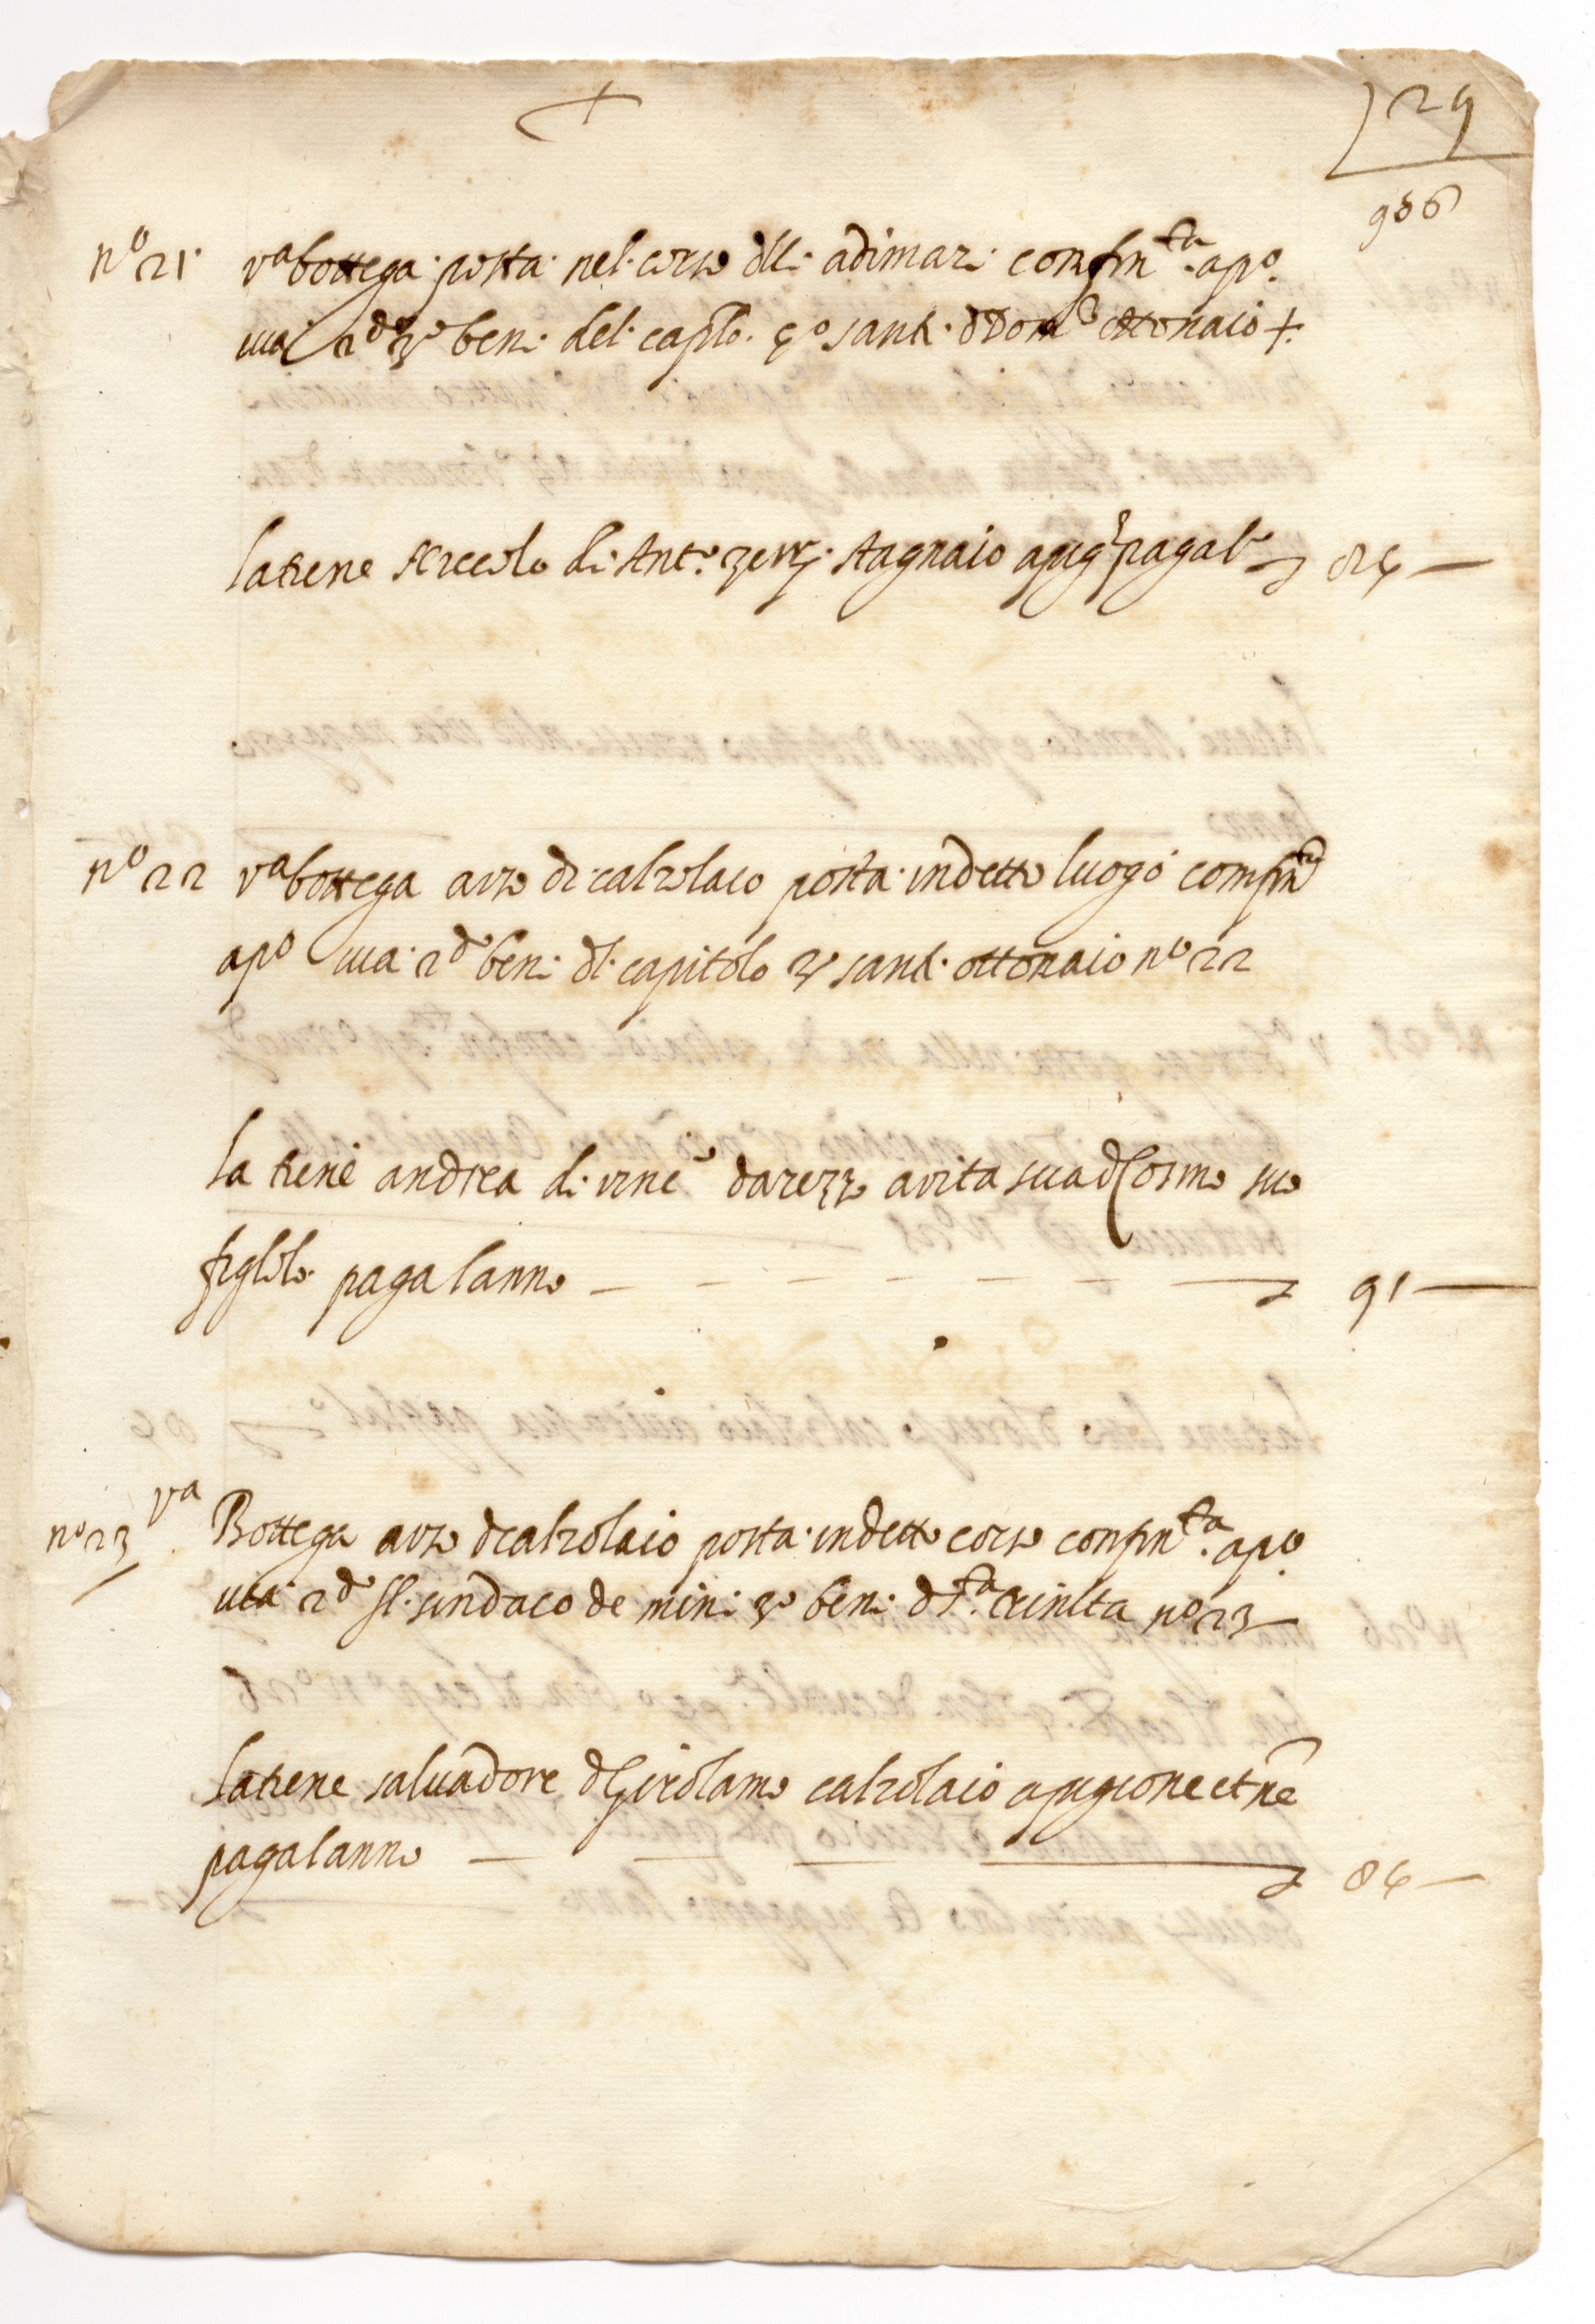 +
29
966
n.o 21. va bottega posta nel corso dli adimari confin.ta a po.
via 2do 3o beni del caplo. 4o santi. d Dom.o ottonaio +.
la tiene Arccolo di Ant.o stagnaio a pig.e paga l.o 84 —
n.o 22 va bottega a uso di calzolaio posta in detto luogo confina
a po via 2do beni dl capitolo 3o santi ottonaio n.o 22
la tiene andrea di vinc.o darezzo a vita sua d Cosimo suo
figlolo paga lanno — — — — — — 91 —
n.o 23 va Bottega a uso di calzolaio posta in detto corso confin.ta a po
via 2do sl. sindaco de mini 3o beni d S.ta trinita n.o 23 —
la tiene salvadore d Girolamo calzolaio a pigione et ne
paga lanno — — — 84 —